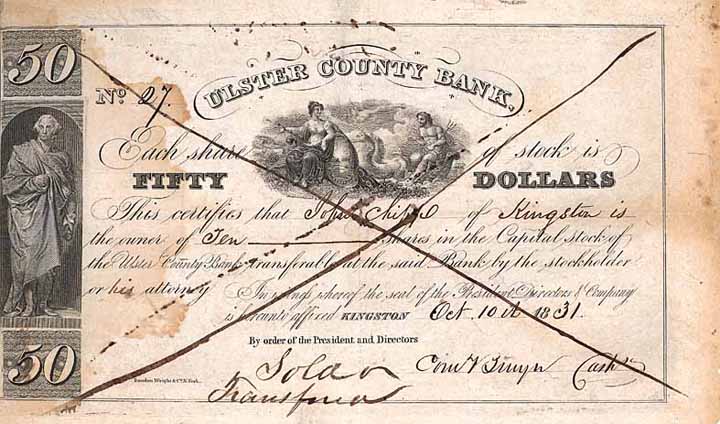 50
ULSTER COUNTY BANK.
No. 27.
Each share of stock is
FIFTY DOLLARS
This certifies that John Chipp of Kingston is
the owner of Ten Shares in the Capital Stock of
the Ulster County Bank transferable at the said Bank by the stockholder
or his attorney In witness whereof the seal of the President Directors & Company
is hereunto affixed KINGSTON Oct. 10th 1831.
By order of the President and Directors
50
Rawdon Wright & Co. N. York.
Sold &
Transferred
Cashr